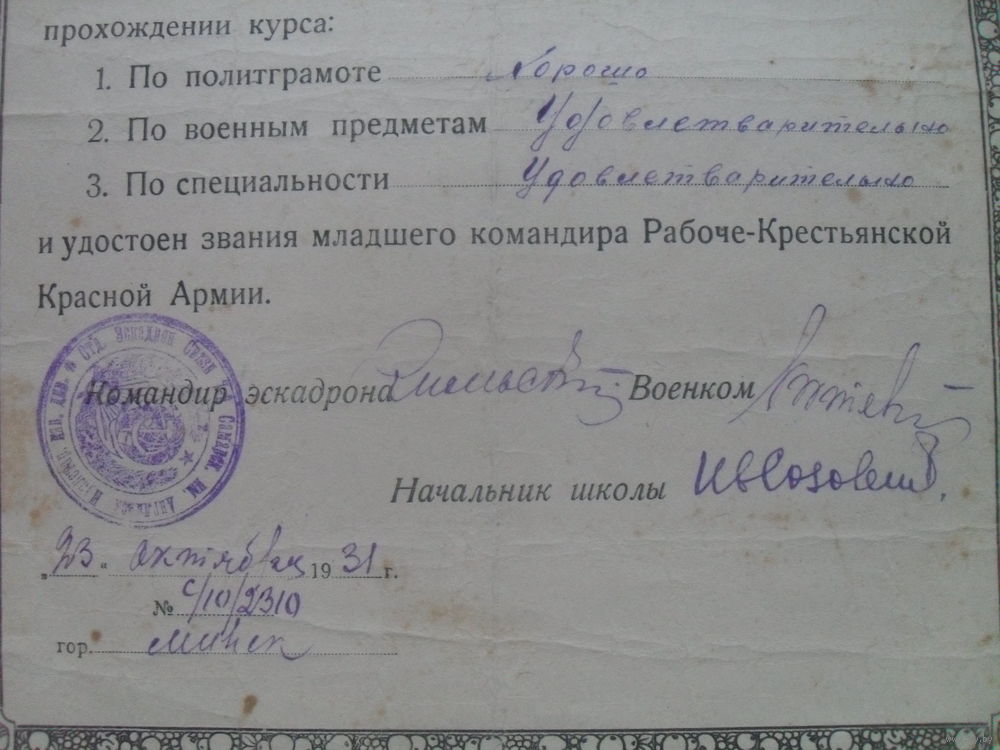 прохождении курса:
1. По политграмоте Хорошо
2. По военным предметам Удовлетварительно
3. По специальности Удовлетварительно
и удостоен звания младшего командира Рабоче-Крестьянской
Красной Армии.
Командир эскадрона Военком
Начальник школы
„23“ октября 1931 г.
№ с/10/2310
гор. Минск